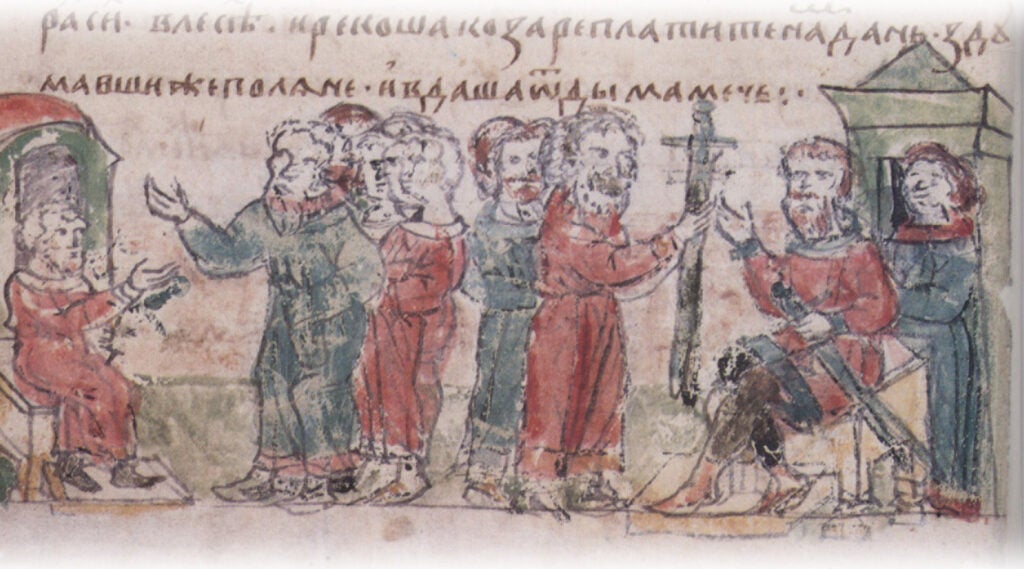 раси · влесѣ · ирекошакозареплатитенадань · зду
мавшижеполѧне · ивдашаѿдымамечь : ·